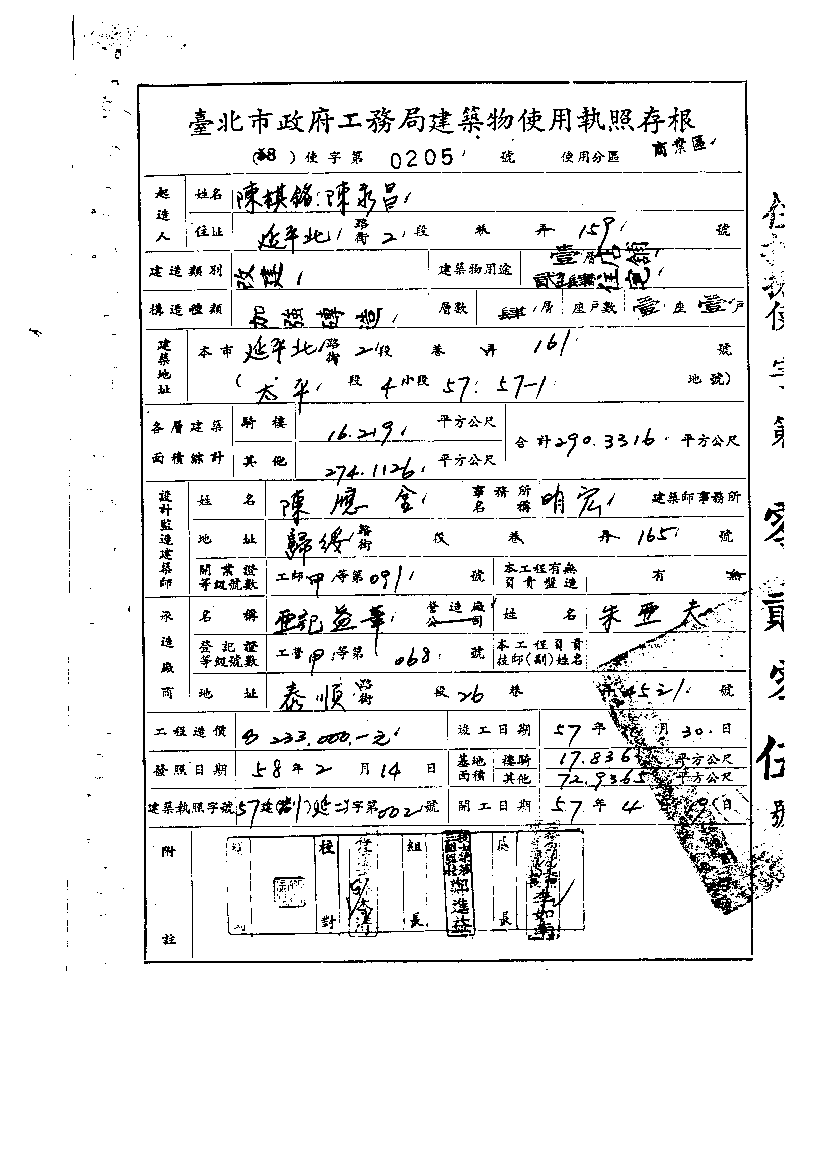 臺北市政府工務局建築物使用執照存根
(58)使字第0205號 使用分區 商業區
起造人 姓名 陳棋銘 陳永昌
住址 延平北路街2段 巷 弄 159 號
建造類別 改建 建築物用途 壹層店舖 住宅
構造種類 加強磚造 層數 肆層 座戶數 壹座壹戶
建築地址 本市延平北路街2段 巷 弄 161 號
(太平段4小段57.57-1 地號)
各層建築面積綜計 騎樓 16.219 平方公尺 合計290.3316平方公尺
其他 274.1126 平方公尺
設計監造建築師 姓名 陳應全 事務所名稱 明宏 建築師事務所
地址 歸綏路街 段 巷 弄 165 號
開業證等級號數 工師甲等第091號 本工程有無負責監造 有 無
承造廠商 名稱 亞記益華 營造廠公司 姓名 朱亞夫
登記證等級號數 工營甲等第068號 本工程負責技師(副)姓名
地址 泰順路街 段26巷 弄 號
工程造價 233,000.-元 竣工日期 57年 月30日
發照日期 58年2月14日 基地面積 樓騎 17.836 平方公尺
其他 72.9365 平方公尺
建築執照字號 57建 字第002號 開工日期 57年4 日
附註
校對 組長 鄭進益 長
使字第零貳零伍號